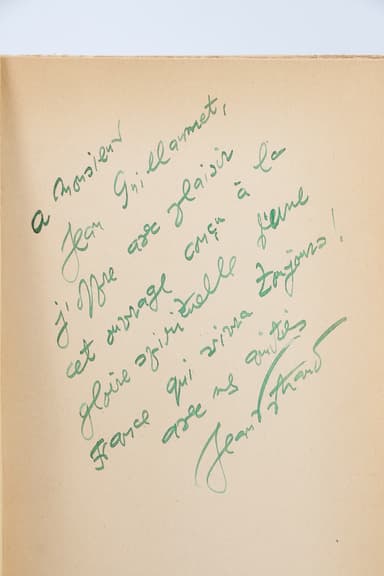 a monsieur
Jean Guillaumet,
j'offre avec plaisir
cet ouvrage conçu à la
gloire spirituelle d'une
France qui vivra toujours!
avec mes amitiés
Jean